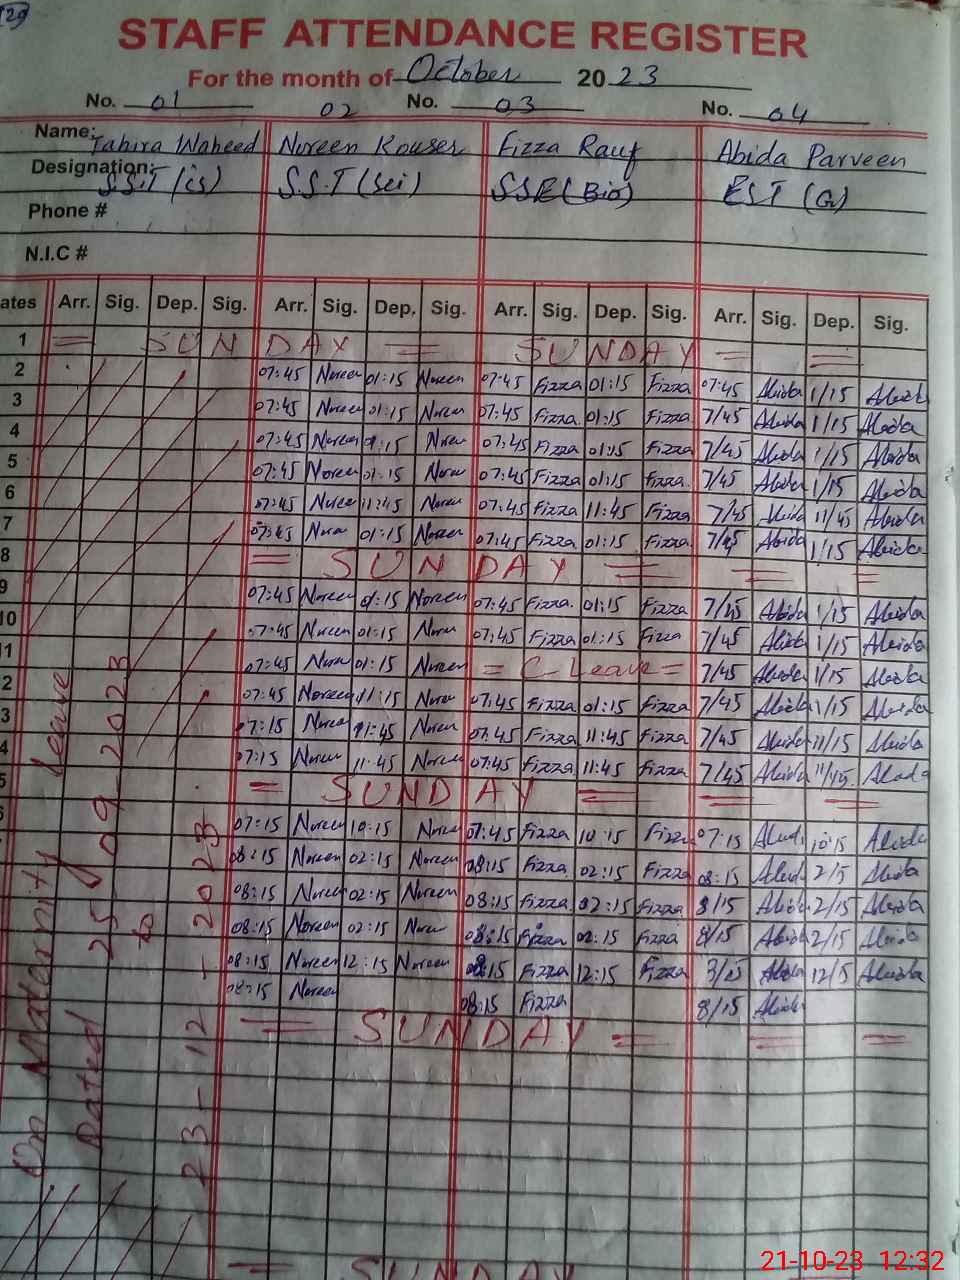 129
STAFF ATTENDANCE REGISTER
For the month of October 2023
No. 01 02 No. 03 No. 04
Name: Tahira Waheed Noreen Kouser Fizza Rauf Abida Parveen
Designation: S.S.T (CS) S.S.T (Sci) SSE (Bio) EST (G)
Phone #
N.I.C #
ates Arr. Sig. Dep. Sig. Arr. Sig. Dep. Sig. Arr. Sig. Dep. Sig. Arr. Sig. Dep. Sig.
1 = SUNDAY = SUNDAY = =
2 07:45 Noreen 01:15 Noreen 07:45 Fizza 01:15 Fizza 07:45 Abida 1/15 Abida
3 07:45 Noreen 01:15 Noreen 07:45 Fizza 01:15 Fizza 7/45 Abida 1/15 Abida
4 07:45 Noreen 01:15 Noreen 07:45 Fizza 01:15 Fizza 7/45 Abida 1/15 Abida
5 07:45 Noreen 01:15 Noreen 07:45 Fizza 01:15 Fizza 7/45 Abida 1/15 Abida
6 07:45 Noreen 11:45 Noreen 07:45 Fizza 11:45 Fizza 7/45 Abida 11/45 Abida
7 07:45 Noreen 01:15 Noreen 07:45 Fizza 01:15 Fizza 7/45 Abida 1/15 Abida
8 = SUNDAY = = =
9 07:45 Noreen 01:15 Noreen 07:45 Fizza 01:15 Fizza 7/45 Abida 1/15 Abida
10 07:45 Noreen 01:15 Noreen 07:45 Fizza 01:15 Fizza 7/45 Abida 1/15 Abida
11 07:45 Noreen 01:15 Noreen = C Leave = 7/45 Abida 1/15 Abida
2 07:45 Noreen 11:15 Noreen 07:45 Fizza 01:15 Fizza 7/45 Abida 1/15 Abida
3 07:15 Noreen 11:45 Noreen 07:45 Fizza 11:45 Fizza 7/45 Abida 11/15 Abida
4 07:15 Noreen 11:45 Noreen 07:45 Fizza 11:45 Fizza 7/45 Abida 11/45 Abida
5 = SUNDAY = = =
6 07:15 Noreen 10:15 Noreen 07:45 Fizza 10:15 Fizza 07:15 Abida 10:15 Abida
08:15 Noreen 02:15 Noreen 08:15 Fizza 02:15 Fizza 08:15 Abida 2/5 Abida
08:15 Noreen 02:15 Noreen 08:15 Fizza 02:15 Fizza 8/15 Abida 2/15 Abida
08:15 Noreen 02:15 Noreen 08:15 Fizza 02:15 Fizza 8/15 Abida 2/15 Abida
08:15 Noreen 12:15 Noreen 08:15 Fizza 12:15 Fizza Abida 12/5 Abida
08:15 Noreen 08:15 Fizza 8/15 Abida
= SUNDAY = = =
On Maternity leave
Dated 25 09-2023
to
23-12-2023
= SUNDAY
21-10-23 12:32